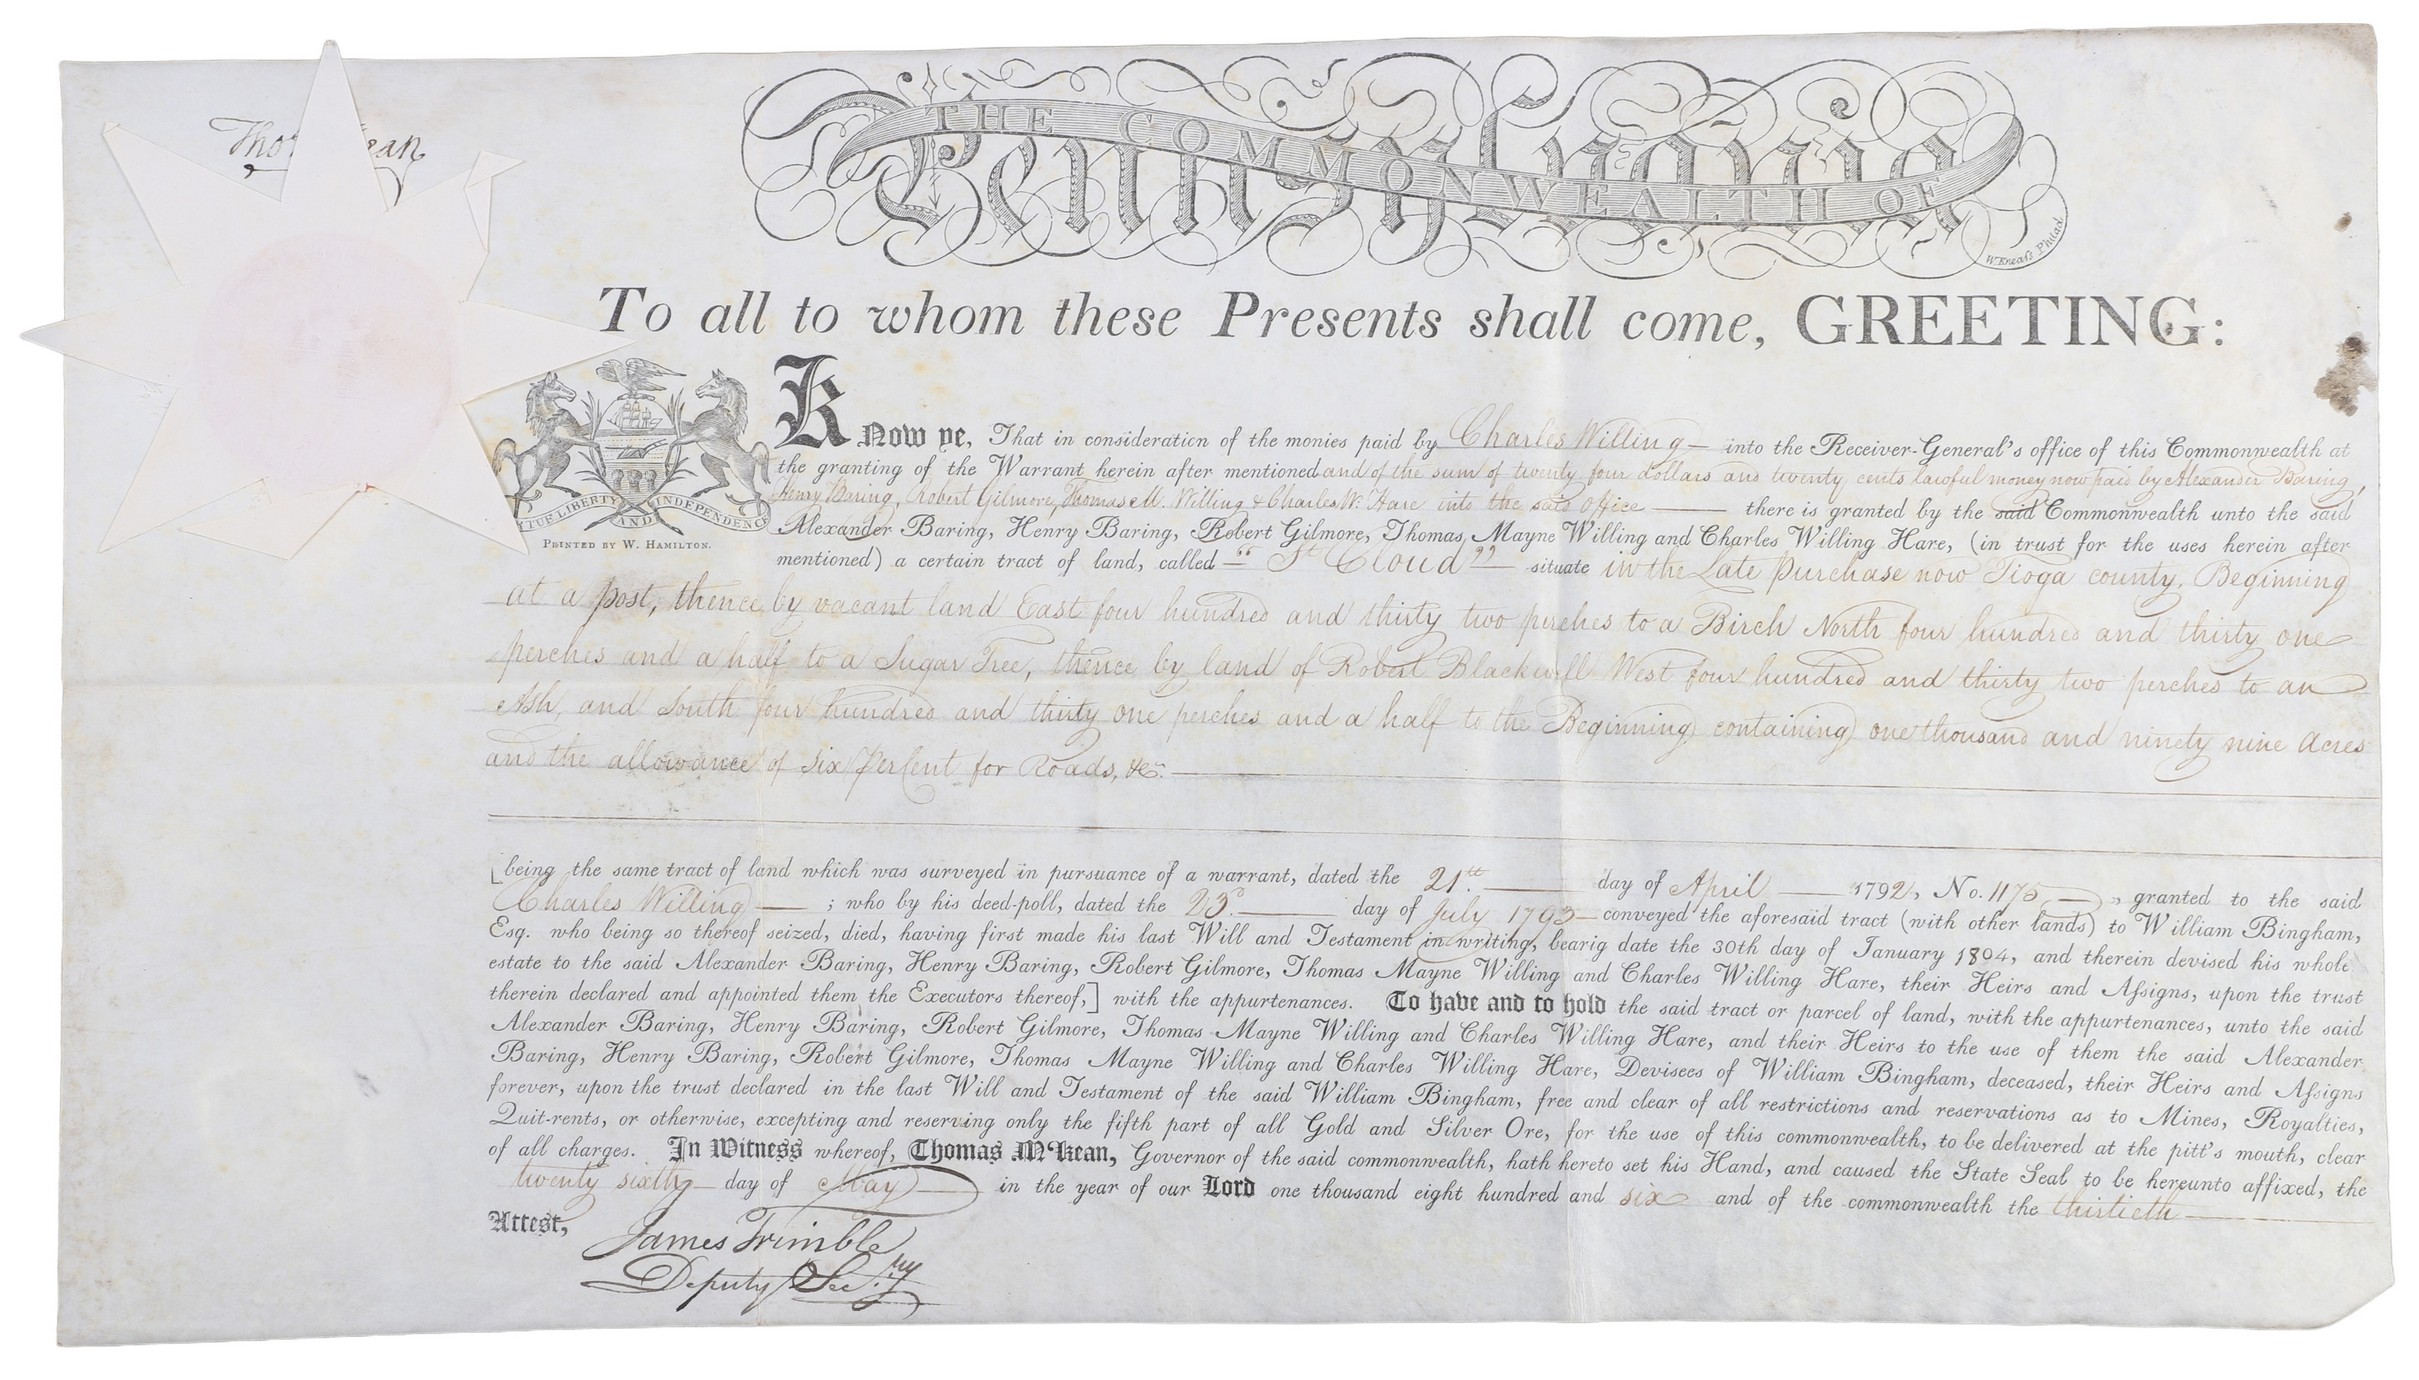 Tho ean
THE COMMONWEALTH OF
Pennsylvania
W Kneass Philad
To all to whom these Presents shall come, GREETING:
VIRTUE LIBERTY AND INDEPENDENCE
PRINTED BY W. HAMILTON.
Know ye, That in consideration of the monies paid by Charles Willing into the Receiver-General's office of this Commonwealth at
the granting of the Warrant herein after mentioned and of the sum of twenty four dollars and twenty cents lawful money now paid by Alexander Baring,
Henry Baring, Robert Gilmore, Thomas M. Willing & Charles W. Hare into the said office there is granted by the said Commonwealth unto the said
Alexander Baring, Henry Baring, Robert Gilmore, Thomas Mayne Willing and Charles Willing Hare, (in trust for the uses herein after
mentioned) a certain tract of land, called "St Cloud" situate in the Late purchase now Tioga county, Beginning
at a post, thence by vacant land East four hundred and thirty two perches to a Birch North four hundred and thirty one
perches and a half to a Sugar Tree, thence by land of Robert Blackwell West four hundred and thirty two perches to an
Ash, and South four hundred and thirty one perches and a half to the Beginning containing one thousand and ninety nine acres
and the allowance of six PerCent for Roads, &c.
[being the same tract of land which was surveyed in pursuance of a warrant, dated the 21th. day of April 1792, No. 1175, granted to the said
Charles Willing ; who by his deed-poll, dated the 23d. day of July 1793 conveyed the aforesaid tract (with other lands) to William Bingham,
Esq. who being so thereof seized, died, having first made his last Will and Testament in writing, bearig date the 30th day of January 1804, and therein devised his whole
estate to the said Alexander Baring, Henry Baring, Robert Gilmore, Thomas Mayne Willing and Charles Willing Hare, their Heirs and Assigns, upon the trust
therein declared and appointed them the Executors thereof,] with the appurtenances. To have and to hold the said tract or parcel of land, with the appurtenances, unto the said
Alexander Baring, Henry Baring, Robert Gilmore, Thomas Mayne Willing and Charles Willing Hare, and their Heirs to the use of them the said Alexander
Baring, Henry Baring, Robert Gilmore, Thomas Mayne Willing and Charles Willing Hare, Devisees of William Bingham, deceased, their Heirs and Assigns
forever, upon the trust declared in the last Will and Testament of the said William Bingham, free and clear of all restrictions and reservations as to Mines, Royalties,
Quit-rents, or otherwise, excepting and reserving only the fifth part of all Gold and Silver Ore, for the use of this commonwealth, to be delivered at the pitt's mouth, clear
of all charges. In Witness whereof, Thomas M'Kean, Governor of the said commonwealth, hath hereto set his Hand, and caused the State Seal to be hereunto affixed, the
twenty sixth day of May in the year of our Lord one thousand eight hundred and six and of the commonwealth the thirtieth
Attest,
James Trimble
Deputy Sec.ry